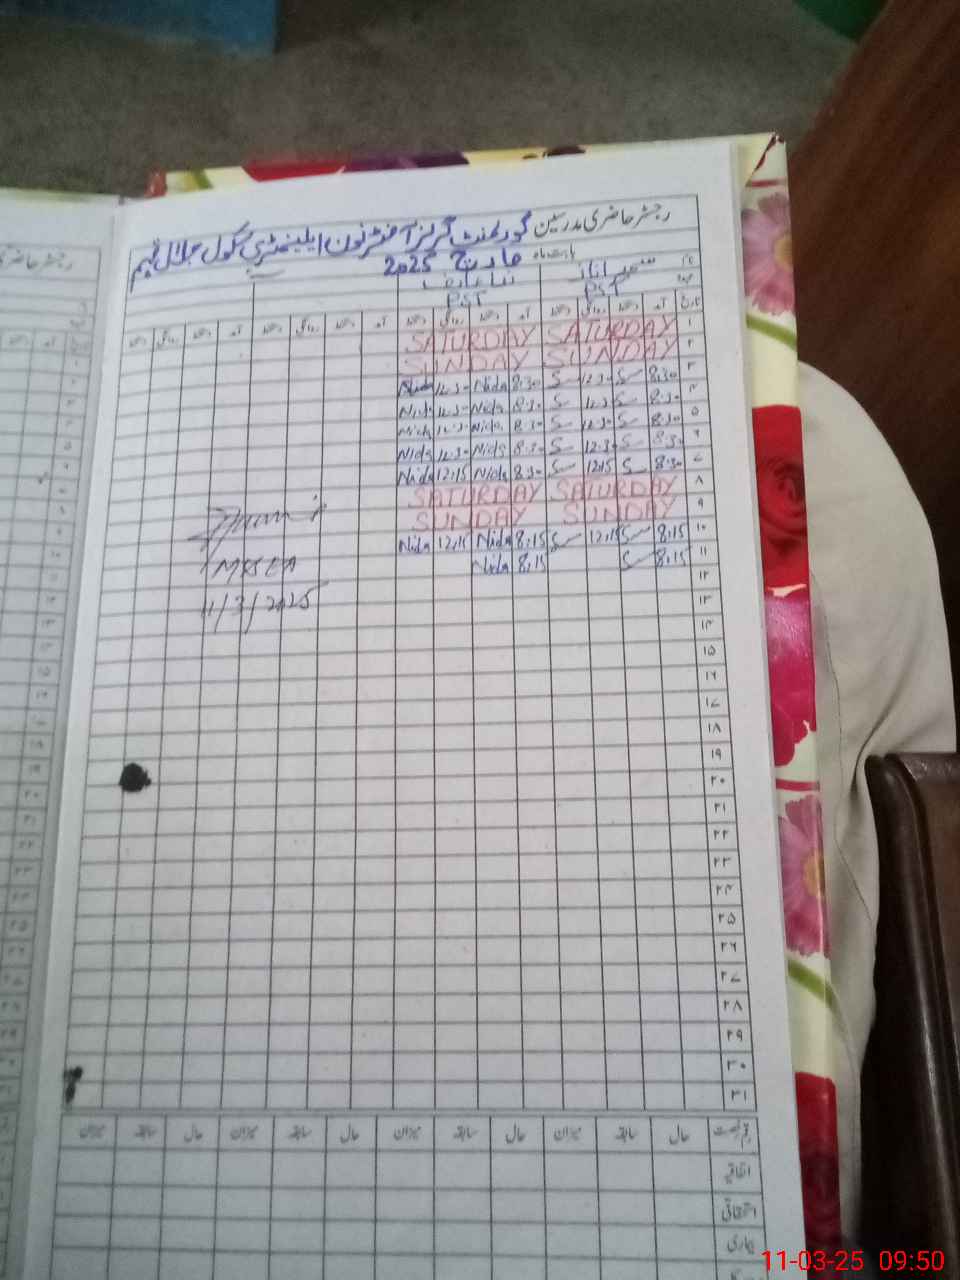 رجسٹر حاضری مدرسین گورنمنٹ گرلز آفٹرنون ایلیمنٹری سکول جلال
بابت ماہ مارچ 2025
PST PST
تاریخ آمد دستخط روانگی دستخط آمد دستخط روانگی دستخط آمد دستخط روانگی دستخط آمد دستخط روانگی دستخط
۱ SATURDAY SATURDAY
۲ SUNDAY SUNDAY
۳ 8:30 S 12:30 S 8:30 Nida 12:30 Nida
۴ 8:30 S 12:30 S 8:30 Nida 12:30 Nida
۵ 8:30 S 12:30 S 8:30 Nida 12:30 Nida
۶ 8:30 S 12:30 S 8:30 Nida 12:30 Nida
۷ 8:30 S 12:15 S 8:30 Nida 12:15 Nida
۸ SATURDAY SATURDAY
۹ SUNDAY SUNDAY
۱۰ 8:15 S 12:15 S 8:15 Nida 12:15 Nida
۱۱ 8:15 S 8:15 Nida
11/3/2025
۱۲
۱۳
۱۴
۱۵
۱۶
۱۷
۱۸
۱۹
۲۰
۲۱
۲۲
۲۳
۲۴
۲۵
۲۶
۲۷
۲۸
۲۹
۳۰
۳۱
قسم رخصت حال سابقہ میزان حال سابقہ میزان حال سابقہ میزان حال سابقہ میزان
اتفاقیہ
استحقاقی
بیماری
11-03-25 09:50